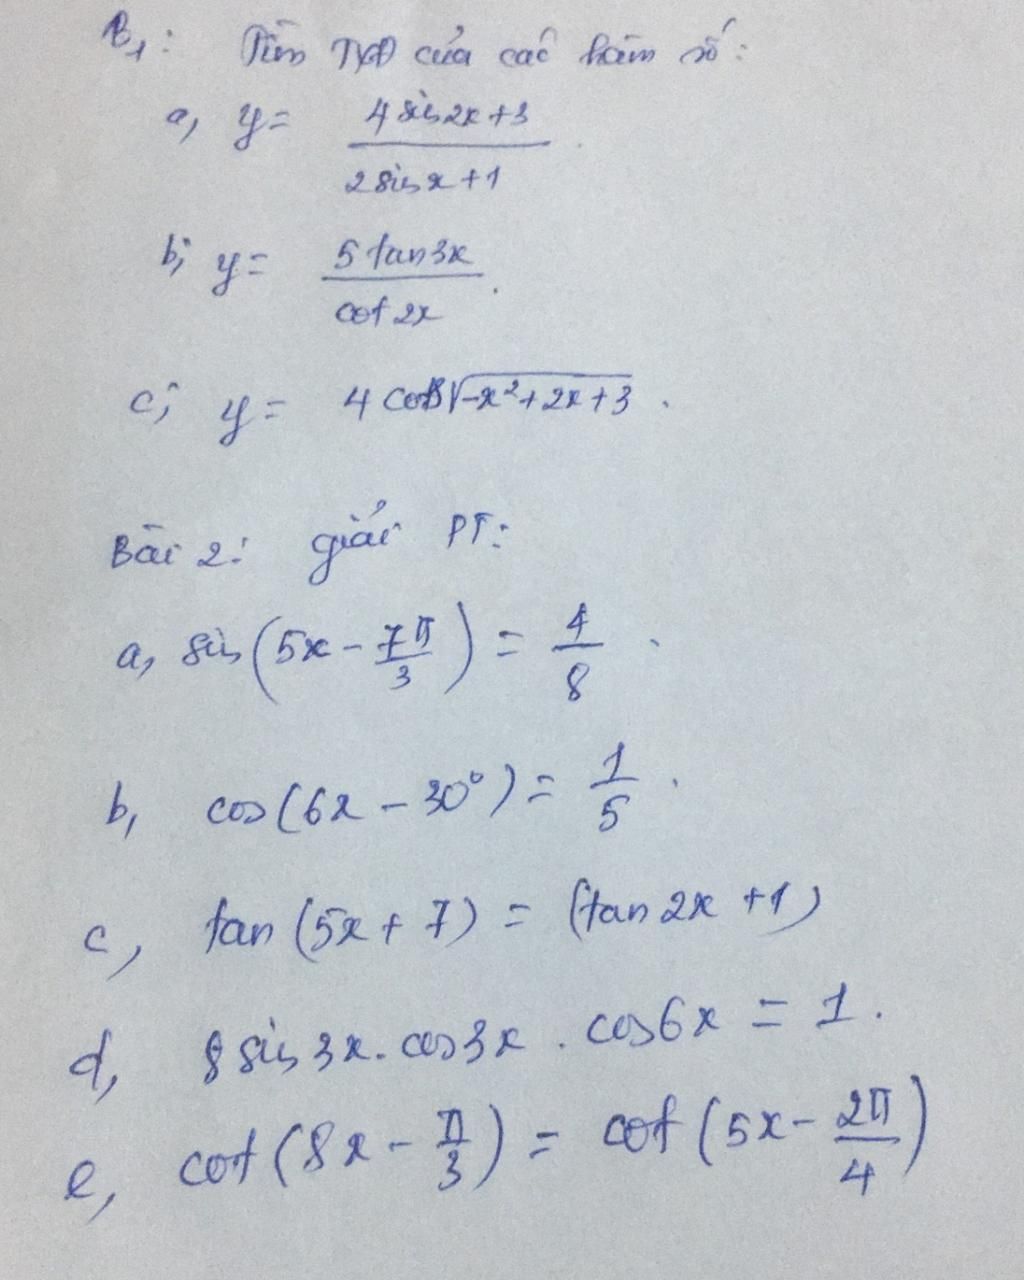 B1: Tìm TXĐ của các hàm số:
a, y = (4 sin 2x + 3) / (2 sin x + 1)
b, y = (5 tan 3x) / (cot 2x).
c, y = 4 cos √(-x² + 2x + 3).
Bài 2: giải PT:
a, sin (5x - 7π/3) = 4/8.
b, cos (6x - 30°) = 1/5.
c, tan (5x + 7) = (tan 2x + 1)
d, 8 sin 3x. cos 3x. cos 6x = 1.
e, cot (8x - π/3) = cot (5x - 2π/4)